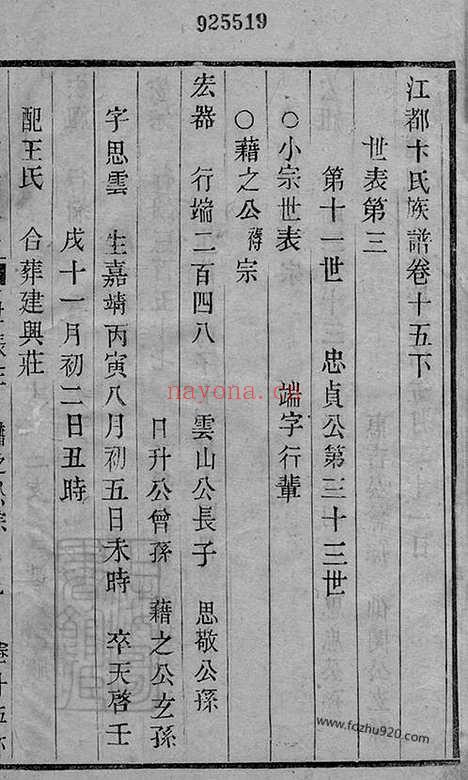 925519
江都卞氏族譜卷十五下
世表第三
第十一世 忠貞公第三十三世
○小宗世表 端字行輩
○藉之公 宗
宏器 行端二百四八 雲山公長子 思敬公孫
日升公曾孫 藉之公玄孫
字思雲 生嘉靖丙寅八月初五日未時 卒天啓壬
戌十一月初二日丑時
配王氏 合葬建興莊
nayona.cn
www.fczhu920.com